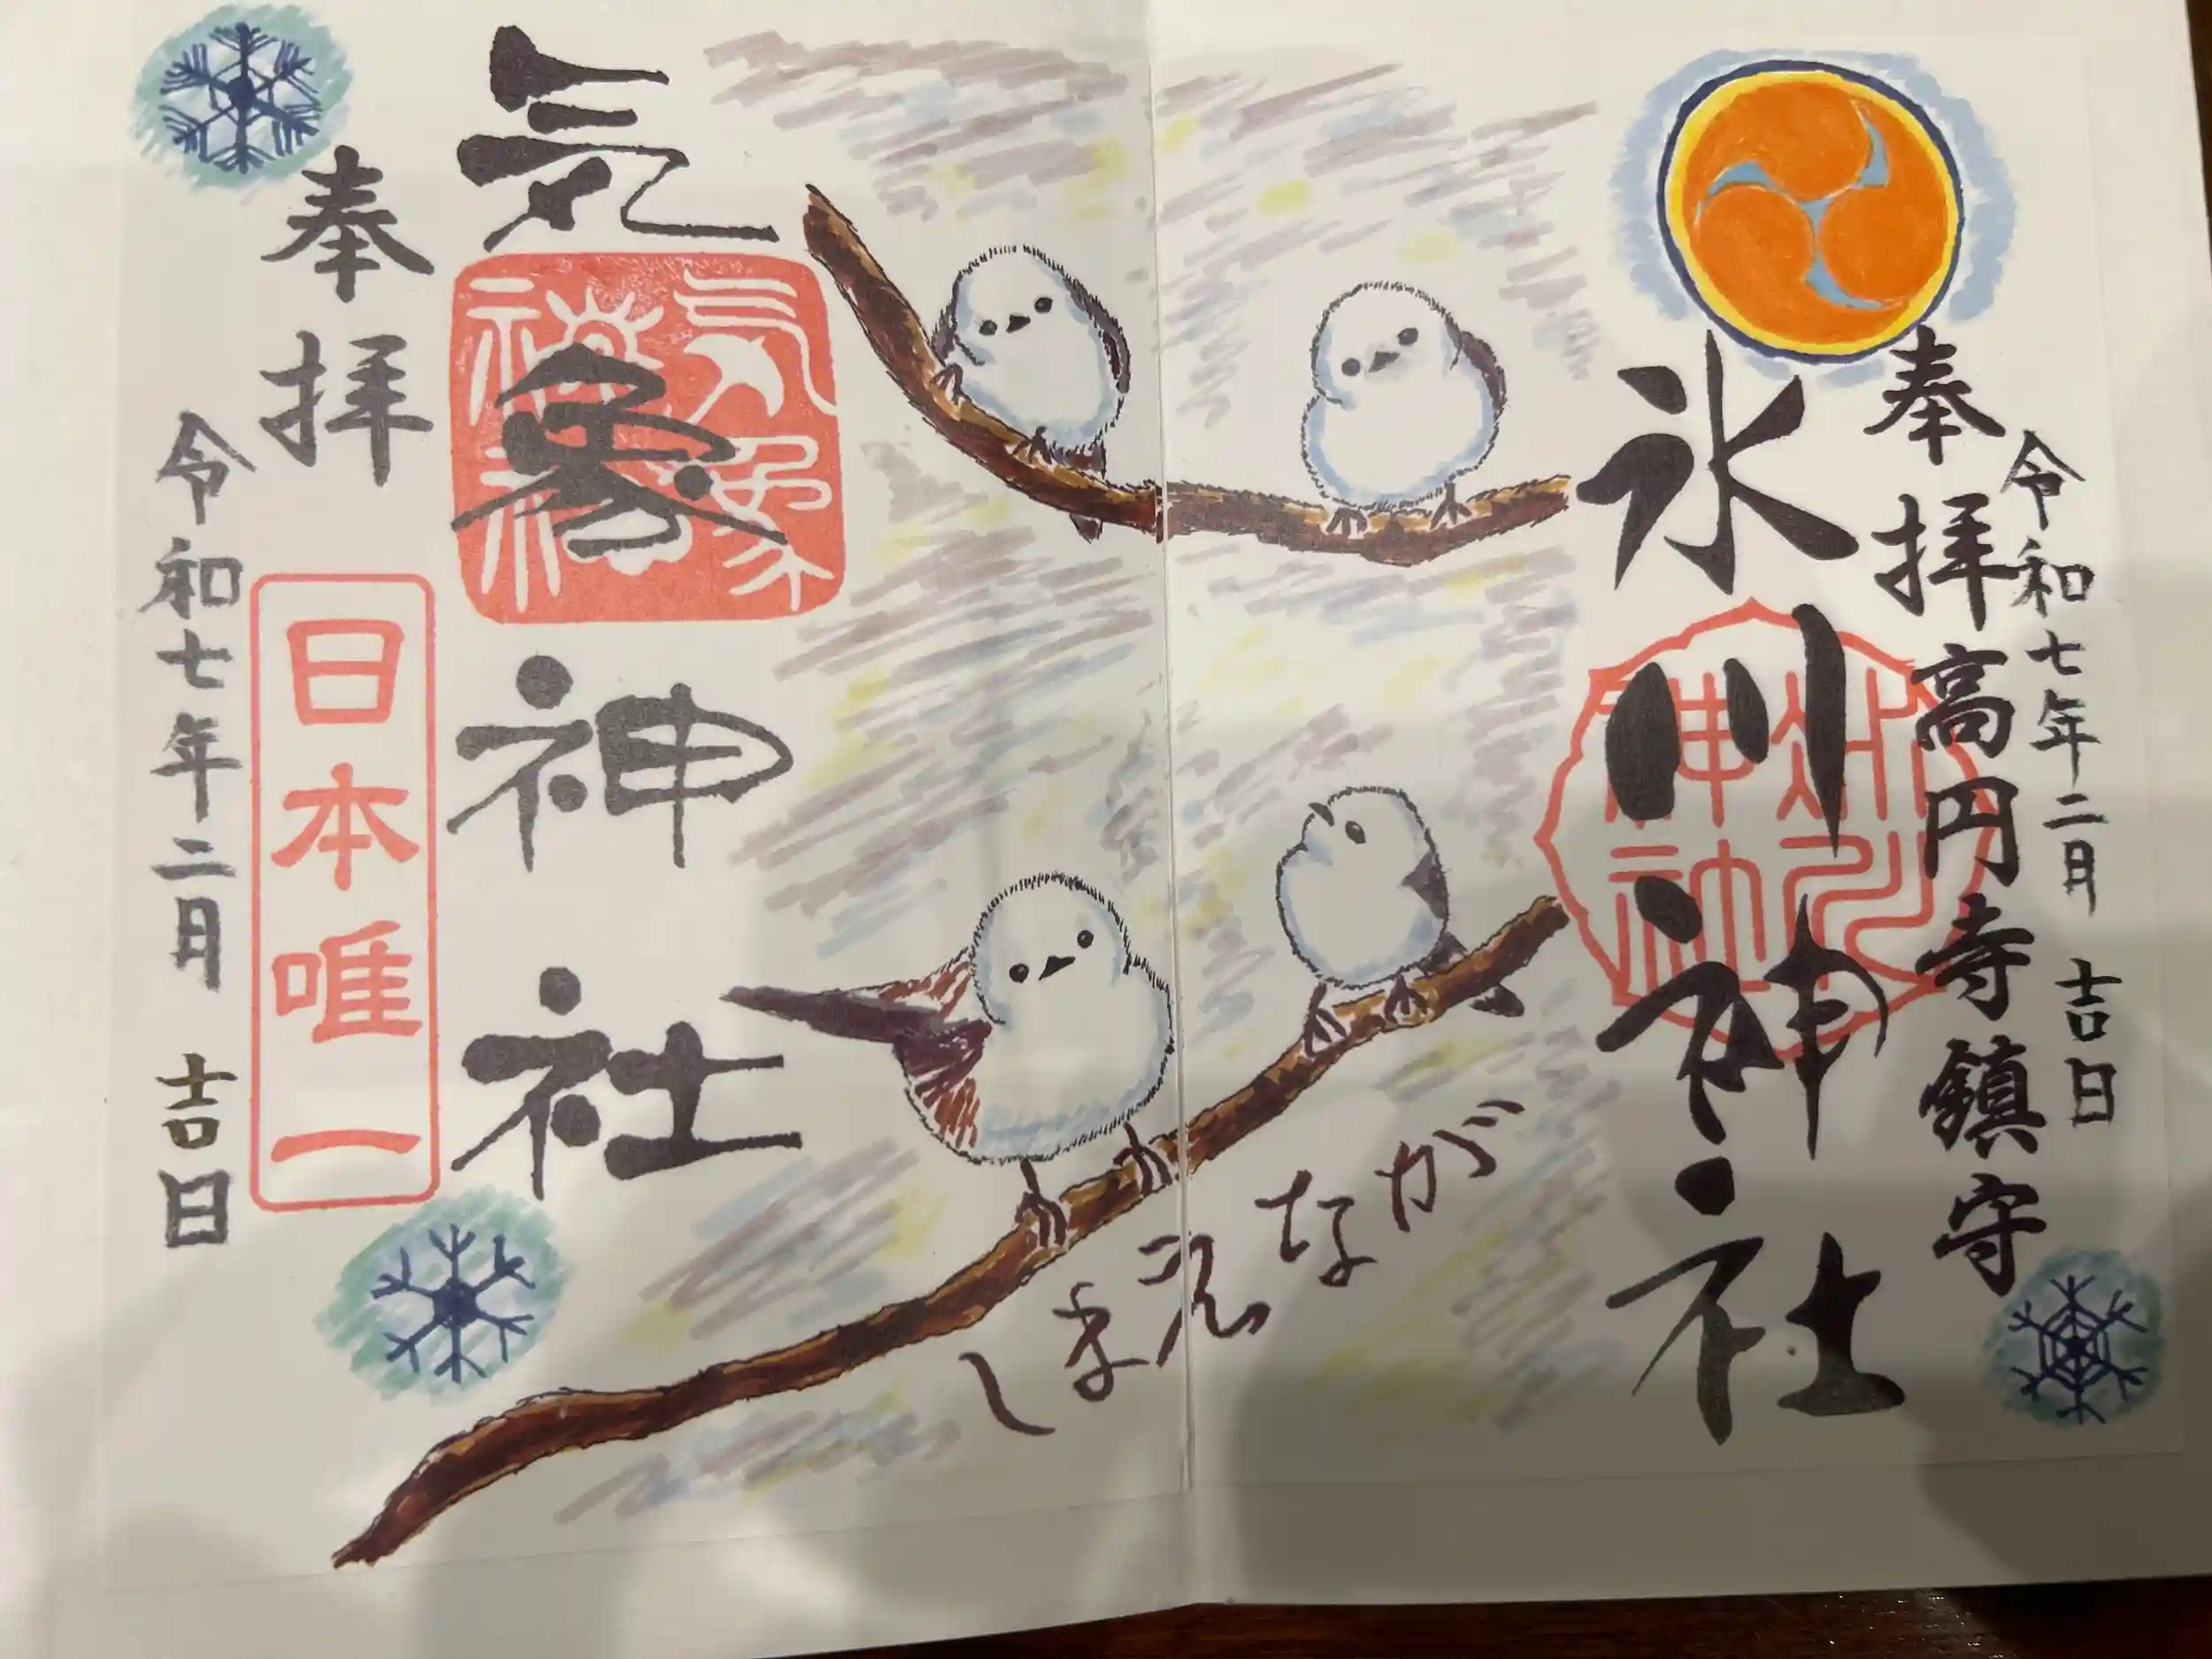 令和七年二月 吉日
奉拝
高円寺鎮守
氷川神社
氷川神社
ながえまし
気象神社
気象神社
奉拝
日本唯一
令和七年二月 吉日